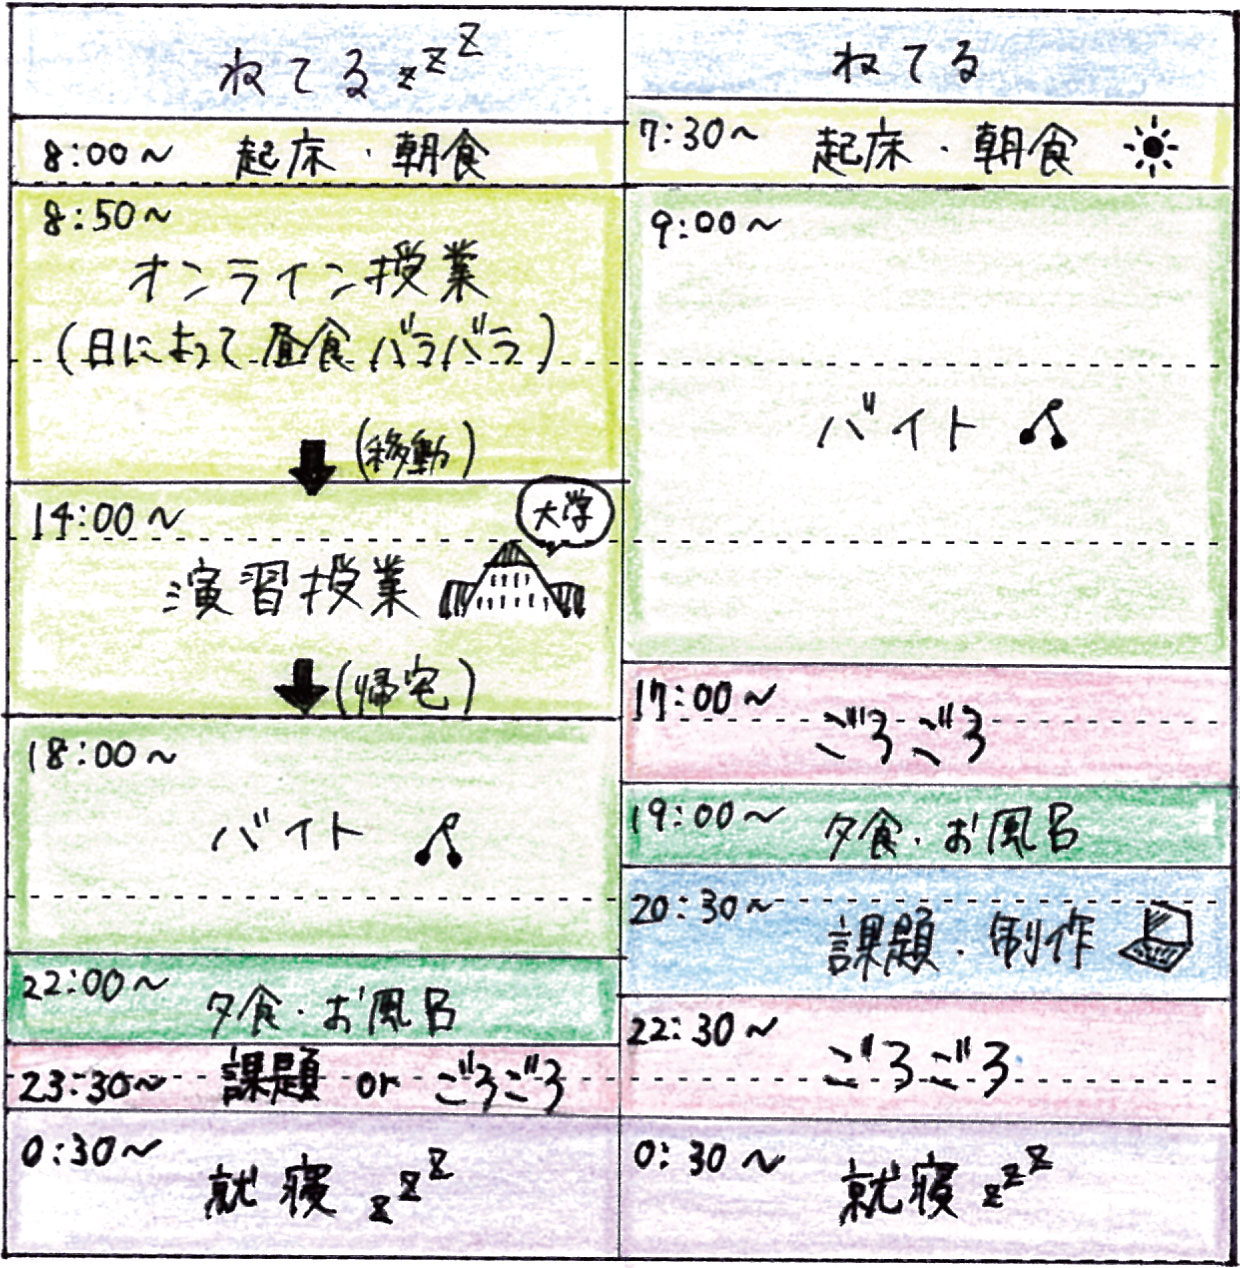 ねてる zzz
8:00〜 起床・朝食
8:50〜
オンライン授業
(日によって昼食バラバラ)
(移動)
14:00〜
大学
演習授業
(帰宅)
18:00〜
バイト
22:00〜
夕食・お風呂
23:30〜 課題 or ごろごろ
0:30〜
就寝 zzz
ねてる
7:30〜 起床・朝食
9:00〜
バイト
17:00〜
ごろごろ
19:00〜
夕食・お風呂
20:30〜
課題・制作
22:30〜
ごろごろ
0:30〜
就寝 zzz